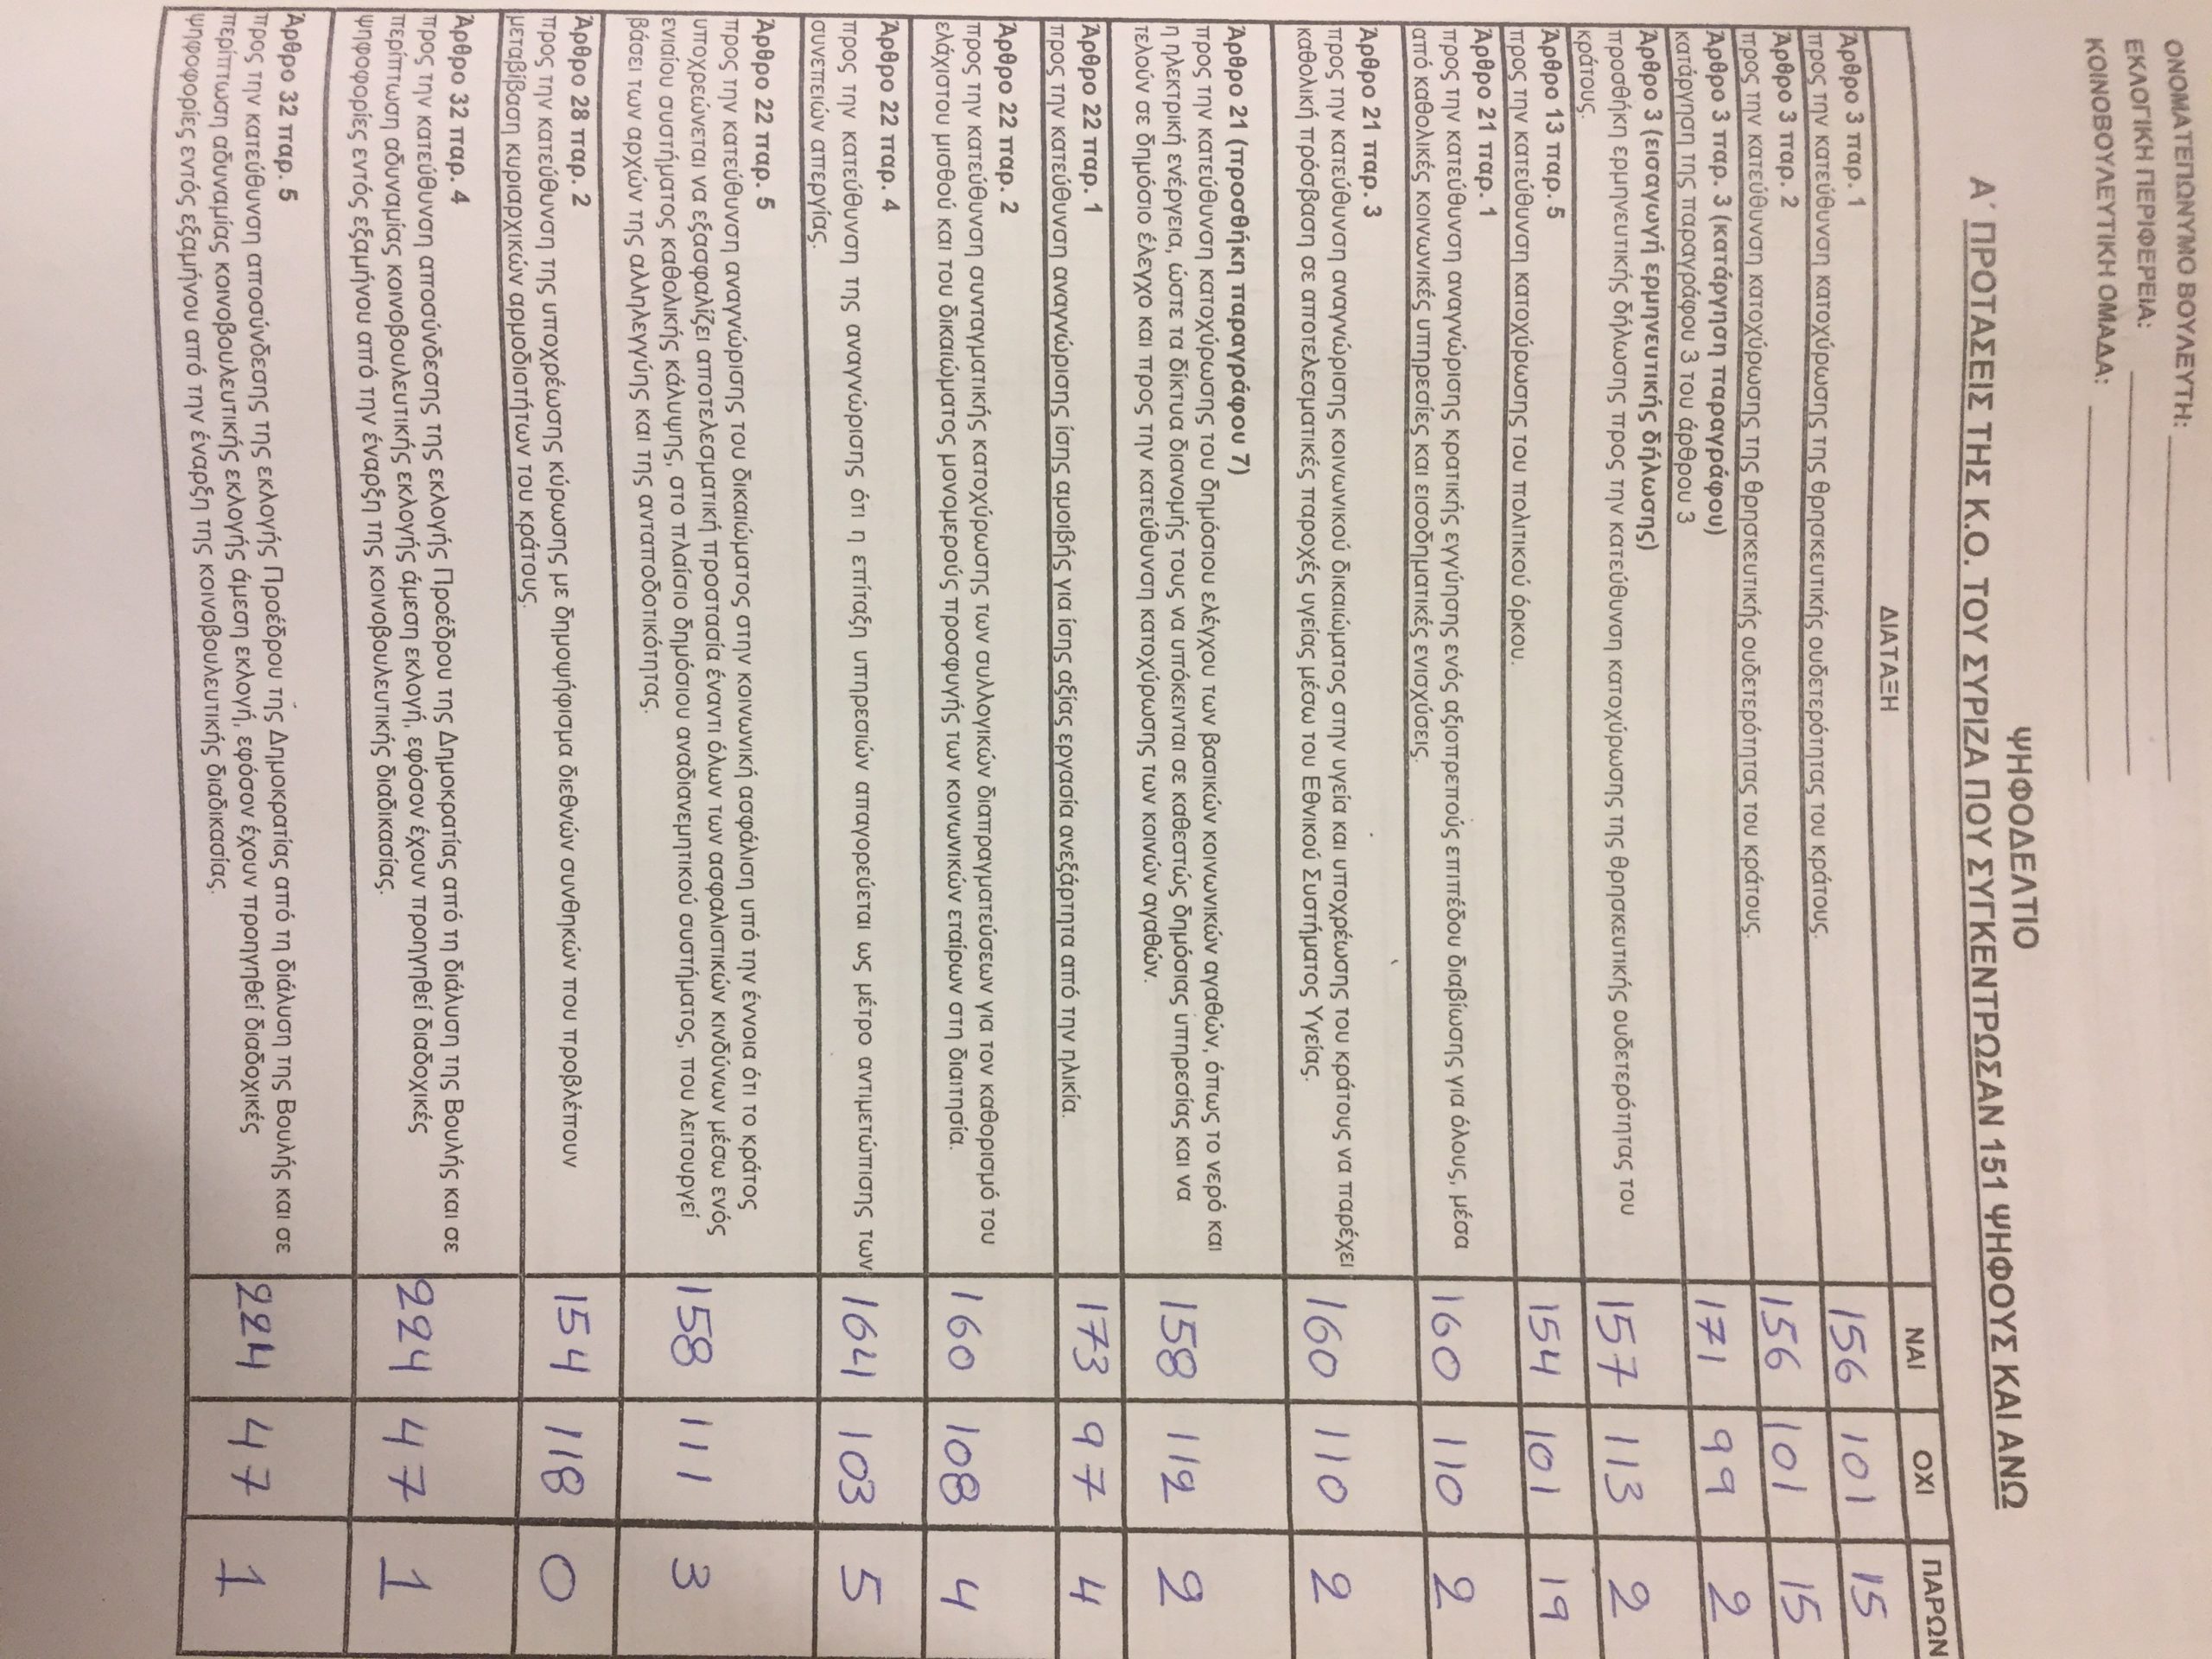 ΟΝΟΜΑΤΕΠΩΝΥΜΟ ΒΟΥΛΕΥΤΗ:
ΕΚΛΟΓΙΚΗ ΠΕΡΙΦΕΡΕΙΑ:
ΚΟΙΝΟΒΟΥΛΕΥΤΙΚΗ ΟΜΑΔΑ:
ΨΗΦΟΔΕΛΤΙΟ
Α΄ ΠΡΟΤΑΣΕΙΣ ΤΗΣ Κ.Ο. ΤΟΥ ΣΥΡΙΖΑ ΠΟΥ ΣΥΓΚΕΝΤΡΩΣΑΝ 151 ΨΗΦΟΥΣ ΚΑΙ ΑΝΩ
ΔΙΑΤΑΞΗ ΝΑΙ ΟΧΙ ΠΑΡΩΝ
Άρθρο 3 παρ. 1
προς την κατεύθυνση κατοχύρωσης της θρησκευτικής ουδετερότητας του κράτους. 156 101 15
Άρθρο 3 παρ. 2
προς την κατεύθυνση κατοχύρωσης της θρησκευτικής ουδετερότητας του κράτους. 156 101 15
Άρθρο 3 παρ. 3 (κατάργηση παραγράφου)
κατάργηση της παραγράφου 3 του άρθρου 3 171 99 2
Άρθρο 3 (εισαγωγή ερμηνευτικής δήλωσης)
προσθήκη ερμηνευτικής δήλωσης προς την κατεύθυνση κατοχύρωσης της θρησκευτικής ουδετερότητας του
κράτους. 157 113 2
Άρθρο 13 παρ. 5
προς την κατεύθυνση κατοχύρωσης του πολιτικού όρκου. 154 101 19
Άρθρο 21 παρ. 1
προς την κατεύθυνση αναγνώρισης κρατικής εγγύησης ενός αξιοπρεπούς επιπέδου διαβίωσης για όλους, μέσα
από καθολικές κοινωνικές υπηρεσίες και εισοδηματικές ενισχύσεις. 160 110 2
Άρθρο 21 παρ. 3
προς την κατεύθυνση αναγνώρισης κοινωνικού δικαιώματος στην υγεία και υποχρέωσης του κράτους να παρέχει
καθολική πρόσβαση σε αποτελεσματικές παροχές υγείας μέσω του Εθνικού Συστήματος Υγείας. 160 110 2
Άρθρο 21 (προσθήκη παραγράφου 7)
προς την κατεύθυνση κατοχύρωσης του δημόσιου ελέγχου των βασικών κοινωνικών αγαθών, όπως το νερό και
η ηλεκτρική ενέργεια, ώστε τα δίκτυα διανομής τους να υπόκεινται σε καθεστώς δημόσιας υπηρεσίας και να
τελούν σε δημόσιο έλεγχο και προς την κατεύθυνση κατοχύρωσης των κοινών αγαθών. 158 112 2
Άρθρο 22 παρ. 1
προς την κατεύθυνση αναγνώρισης ίσης αμοιβής για ίσης αξίας εργασία ανεξάρτητα από την ηλικία. 173 97 4
Άρθρο 22 παρ. 2
προς την κατεύθυνση συνταγματικής κατοχύρωσης των συλλογικών διαπραγματεύσεων για τον καθορισμό του
ελάχιστου μισθού και του δικαιώματος μονομερούς προσφυγής των κοινωνικών εταίρων στη διαιτησία. 160 108 4
Άρθρο 22 παρ. 4
προς την κατεύθυνση της αναγνώρισης ότι η επίταξη υπηρεσιών απαγορεύεται ως μέτρο αντιμετώπισης των
συνεπειών απεργίας. 164 103 5
Άρθρο 22 παρ. 5
προς την κατεύθυνση αναγνώρισης του δικαιώματος στην κοινωνική ασφάλιση υπό την έννοια ότι το κράτος
υποχρεώνεται να εξασφαλίζει αποτελεσματική προστασία έναντι όλων των ασφαλιστικών κινδύνων μέσω ενός
ενιαίου συστήματος καθολικής κάλυψης, στο πλαίσιο δημόσιου αναδιανεμητικού συστήματος, που λειτουργεί
βάσει των αρχών της αλληλεγγύης και της ανταποδοτικότητας. 158 111 3
Άρθρο 28 παρ. 2
προς την κατεύθυνση της υποχρέωσης κύρωσης με δημοψήφισμα διεθνών συνθηκών που προβλέπουν
μεταβίβαση κυριαρχικών αρμοδιοτήτων του κράτους. 154 118 0
Άρθρο 32 παρ. 4
προς την κατεύθυνση αποσύνδεσης της εκλογής Προέδρου της Δημοκρατίας από τη διάλυση της Βουλής και σε
περίπτωση αδυναμίας κοινοβουλευτικής εκλογής άμεση εκλογή, εφόσον έχουν προηγηθεί διαδοχικές
ψηφοφορίες εντός εξαμήνου από την έναρξη της κοινοβουλευτικής διαδικασίας. 224 47 1
Άρθρο 32 παρ. 5
προς την κατεύθυνση αποσύνδεσης της εκλογής Προέδρου της Δημοκρατίας από τη διάλυση της Βουλής και σε
περίπτωση αδυναμίας κοινοβουλευτικής εκλογής άμεση εκλογή, εφόσον έχουν προηγηθεί διαδοχικές
ψηφοφορίες εντός εξαμήνου από την έναρξη της κοινοβουλευτικής διαδικασίας. 224 47 1